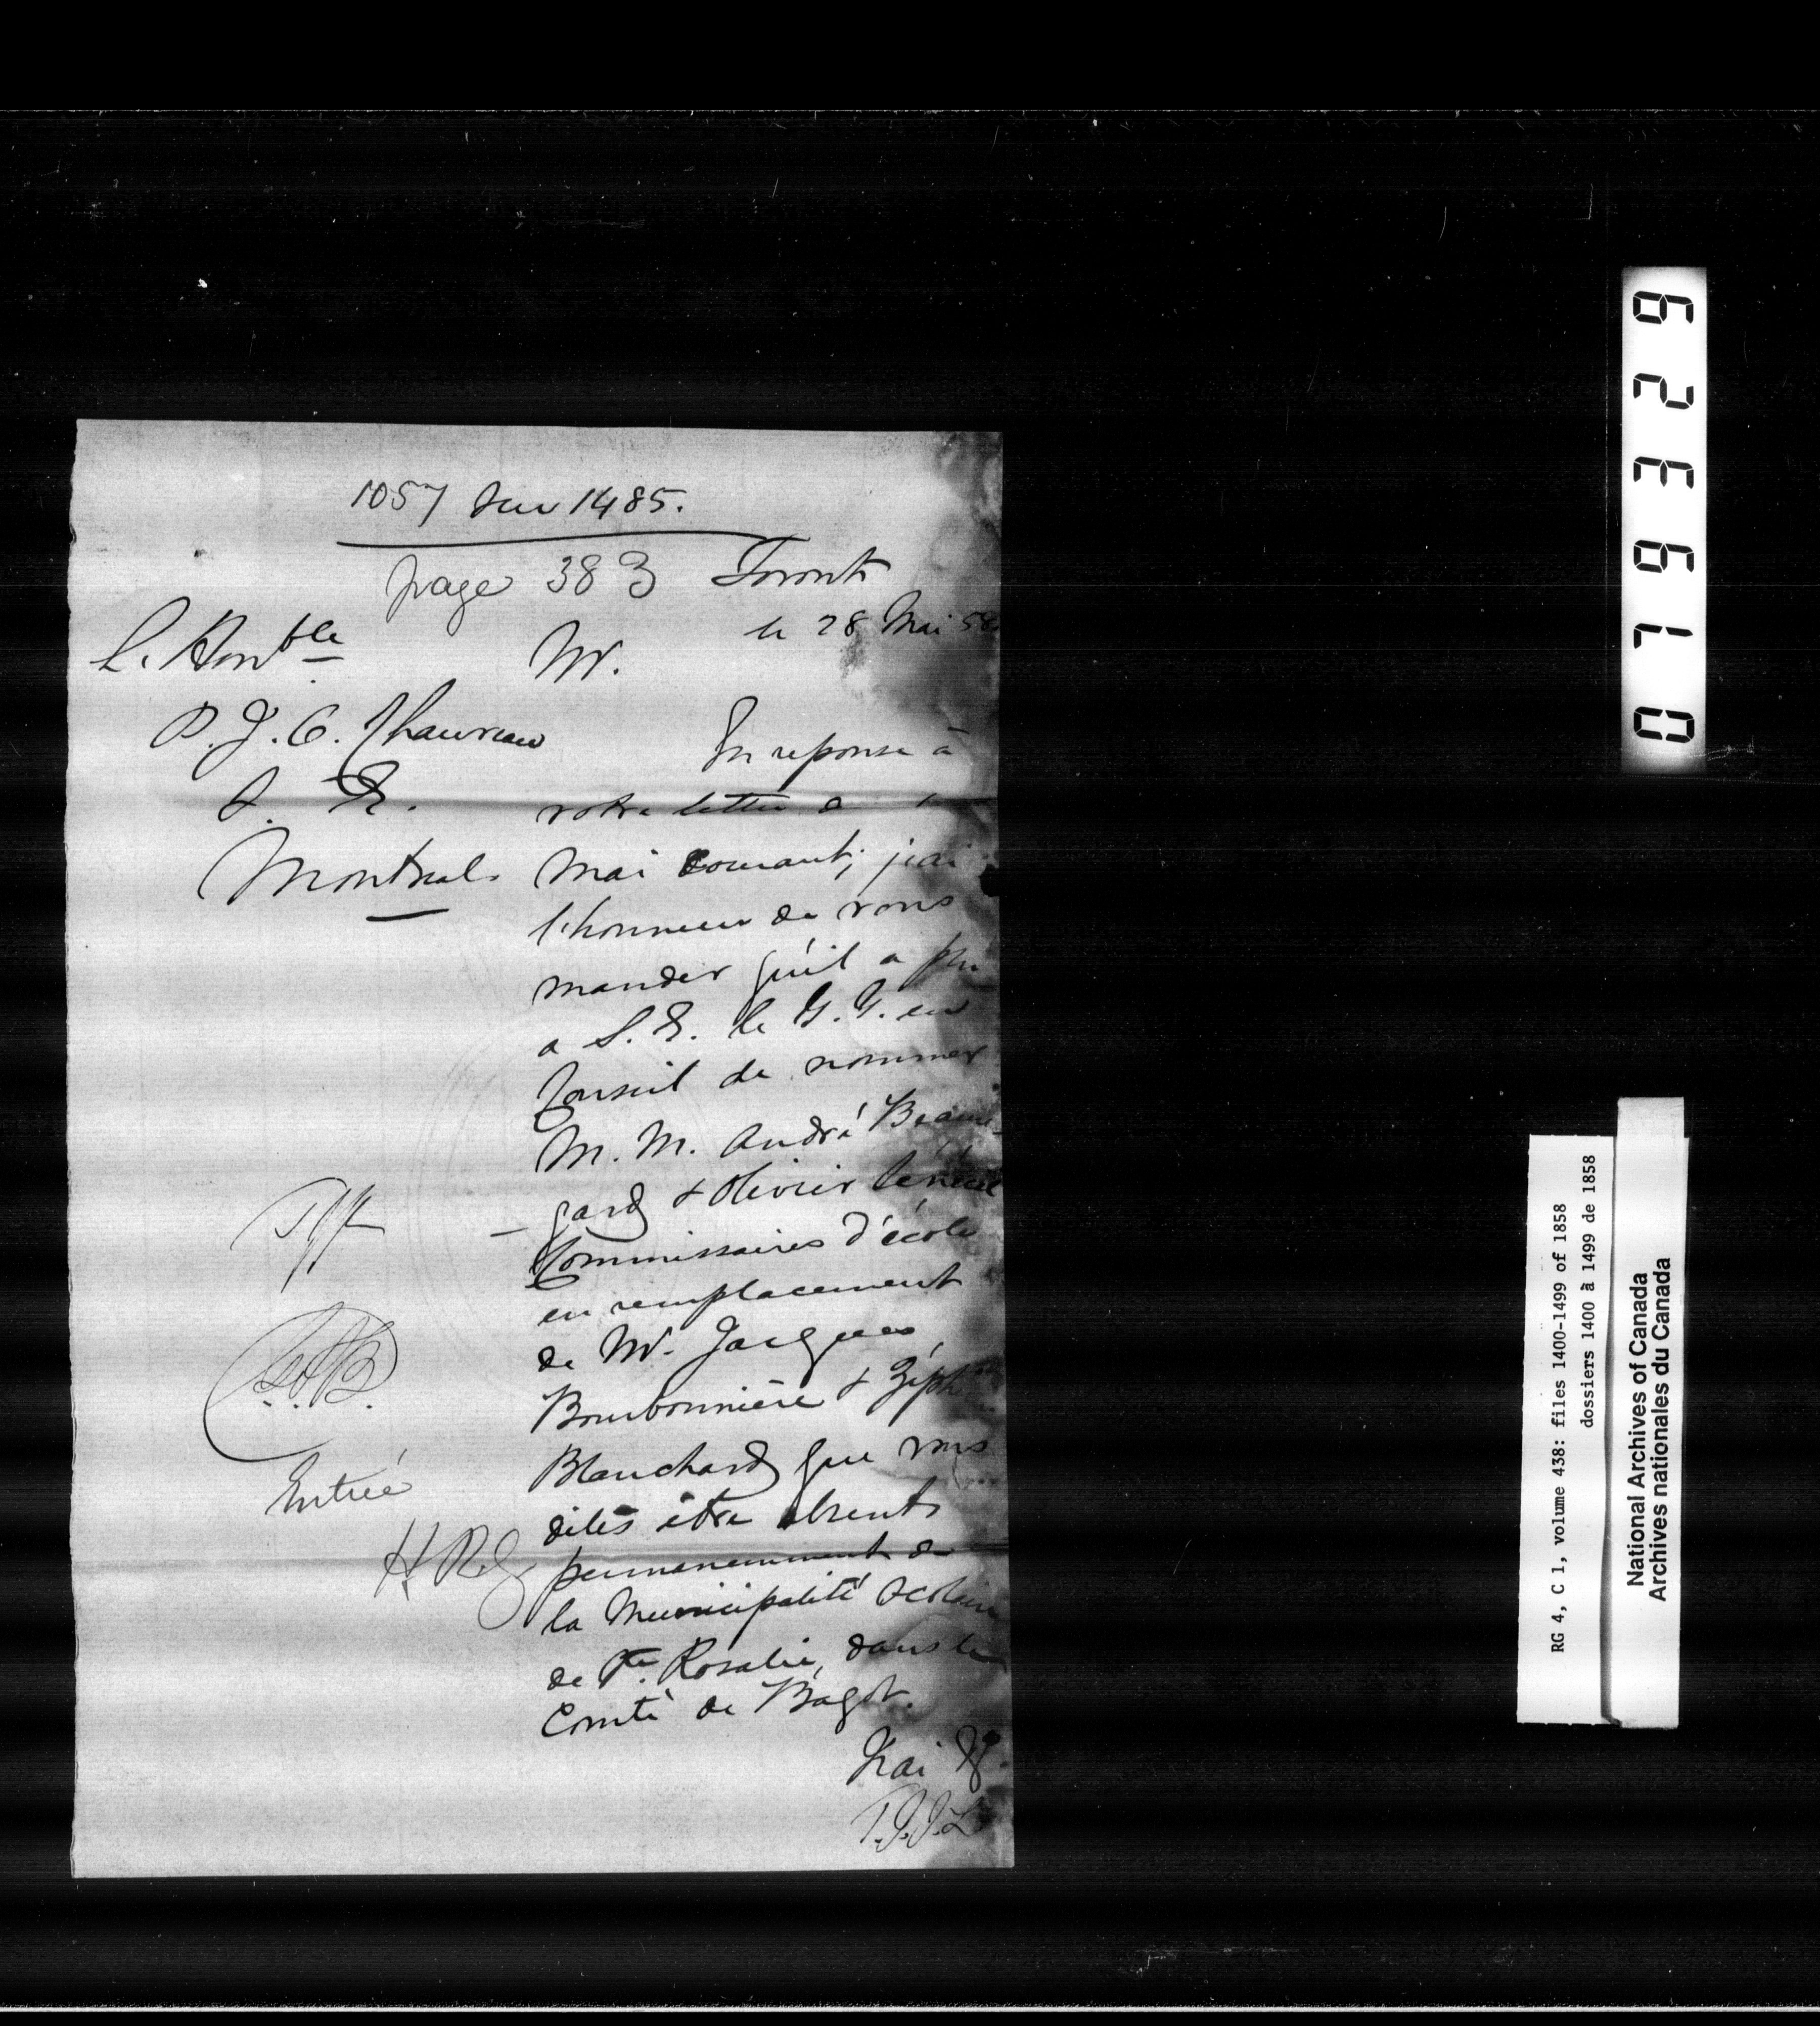 1057 sur 1485.
page 383 Toronto
le 28 Mai 58
L. Honble
P. J. O. Chauveau
S. E.
Montreal
Mr.
En reponse à
votre lettre
Mai courant, j'ai
l'honneur de vous
mander qu'il a plu
a S. E. le G. G. en
Conseil de nommer
M. M. André Beaure-
gard & Olivier
Commissaires d'école
en remplacement
de Mr. Jacques
Bourbonnière & Zéphir
Blanchard que vous
dites être absents
permanemment de
la Municipalité scolaire
de Ste. Rosalie, dans le
Comté de Bagot.
T.J.J.L
Entrée
017639
RG 4, C 1, volume 438: files 1400-1499 of 1858
dossiers 1400 à 1499 de 1858
National Archives of Canada
Archives nationales du Canada